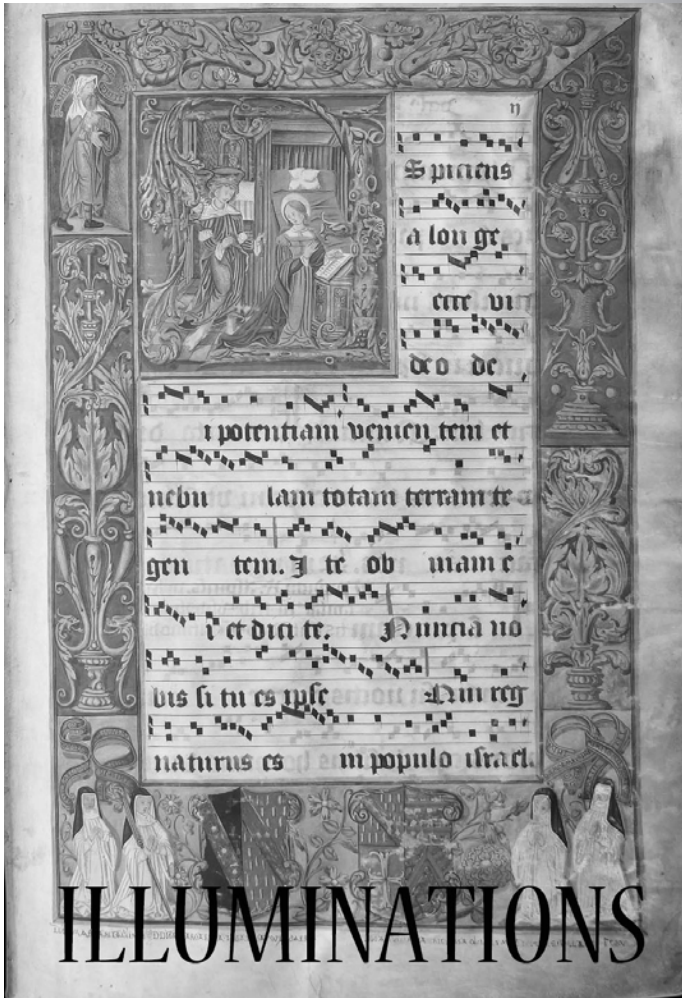 S piciens
a lon ge
ecce vi
deo de
i potentiam venien tem et
nebu lam totam terram te
gen tem. I te ob viam e
i et dici te. Nuncia no
bis si tu es ipse Qui reg
naturus es in populo israel.
ILLUMINATIONS